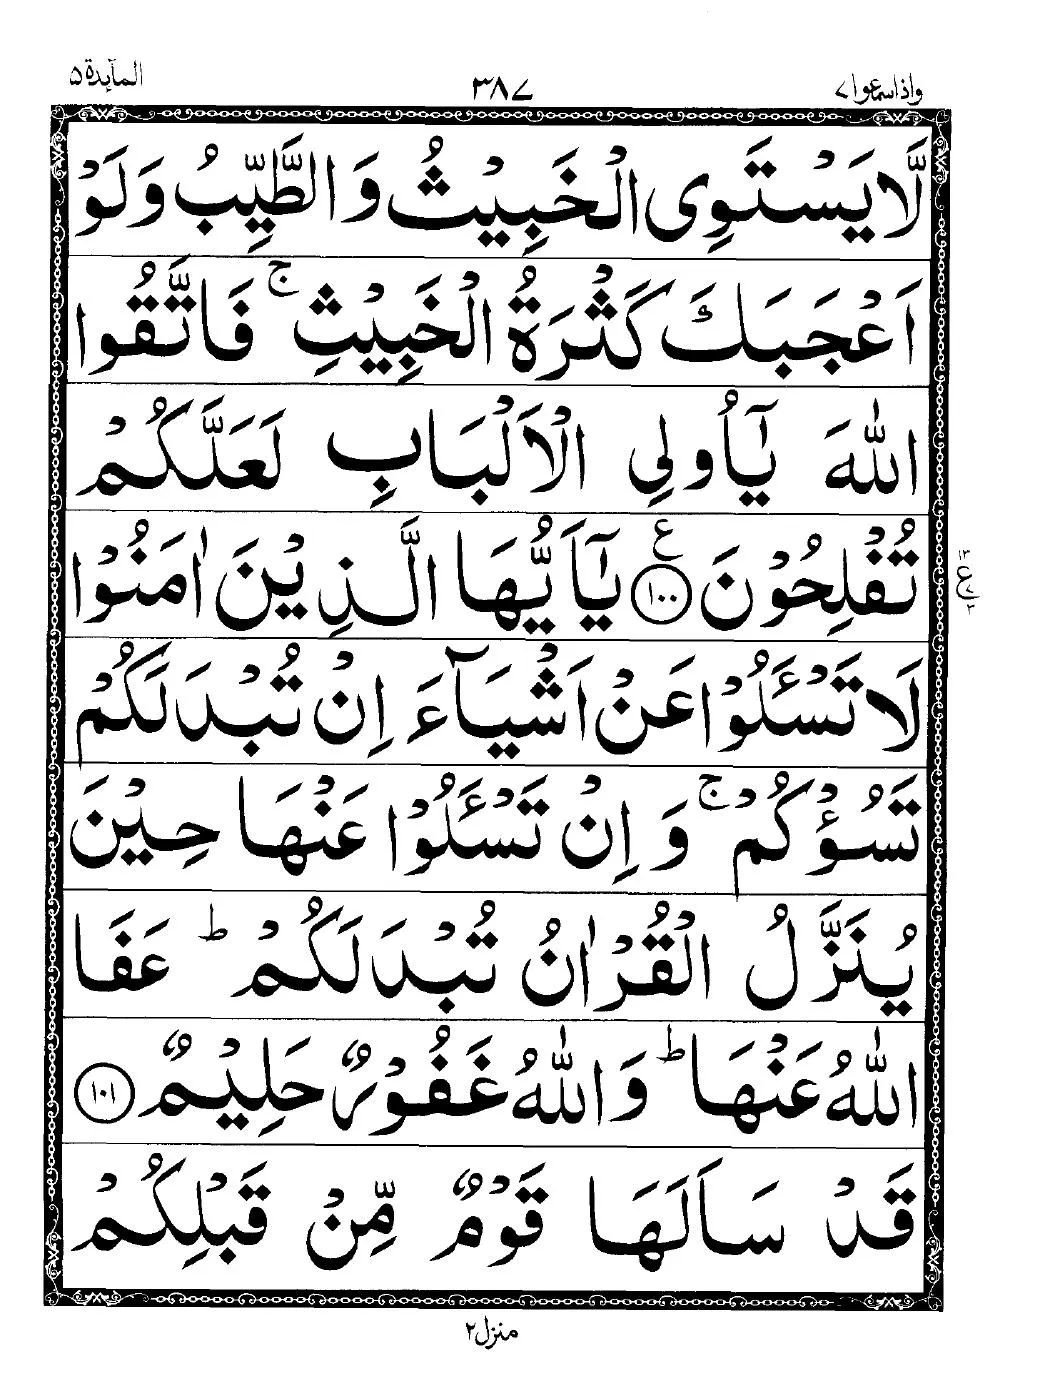 المآىِٕدة ۵
۳۸۷
واذاسمعوا ۷
لَّا يَسْتَوِى الْخَبِيْثُ وَالطَّيِّبُ وَلَوْ
اَعْجَبَكَ كَثْرَةُ الْخَبِيْثِ ۚ فَاتَّقُوا
اللّٰهَ يٰٓاُولِى الْاَلْبَابِ لَعَلَّكُمْ
تُفْلِحُوْنَ ع ۱۰۰ يٰٓاَيُّهَا الَّذِيْنَ اٰمَنُوْا
۱۳
ع
۳
لَا تَسْـَٔلُوْا عَنْ اَشْيَآءَ اِنْ تُبْدَ لَكُمْ
تَسُؤْكُمْ ۚ وَ اِنْ تَسْـَٔلُوْا عَنْهَا حِيْنَ
يُنَزَّلُ الْقُرْاٰنُ تُبْدَ لَكُمْ ؕ عَفَا
اللّٰهُ عَنْهَا ؕ وَاللّٰهُ غَفُوْرٌ حَلِيْمٌ ۱۰۱
قَدْ سَاَلَهَا قَوْمٌ مِّنْ قَبْلِكُمْ
منزل ۲